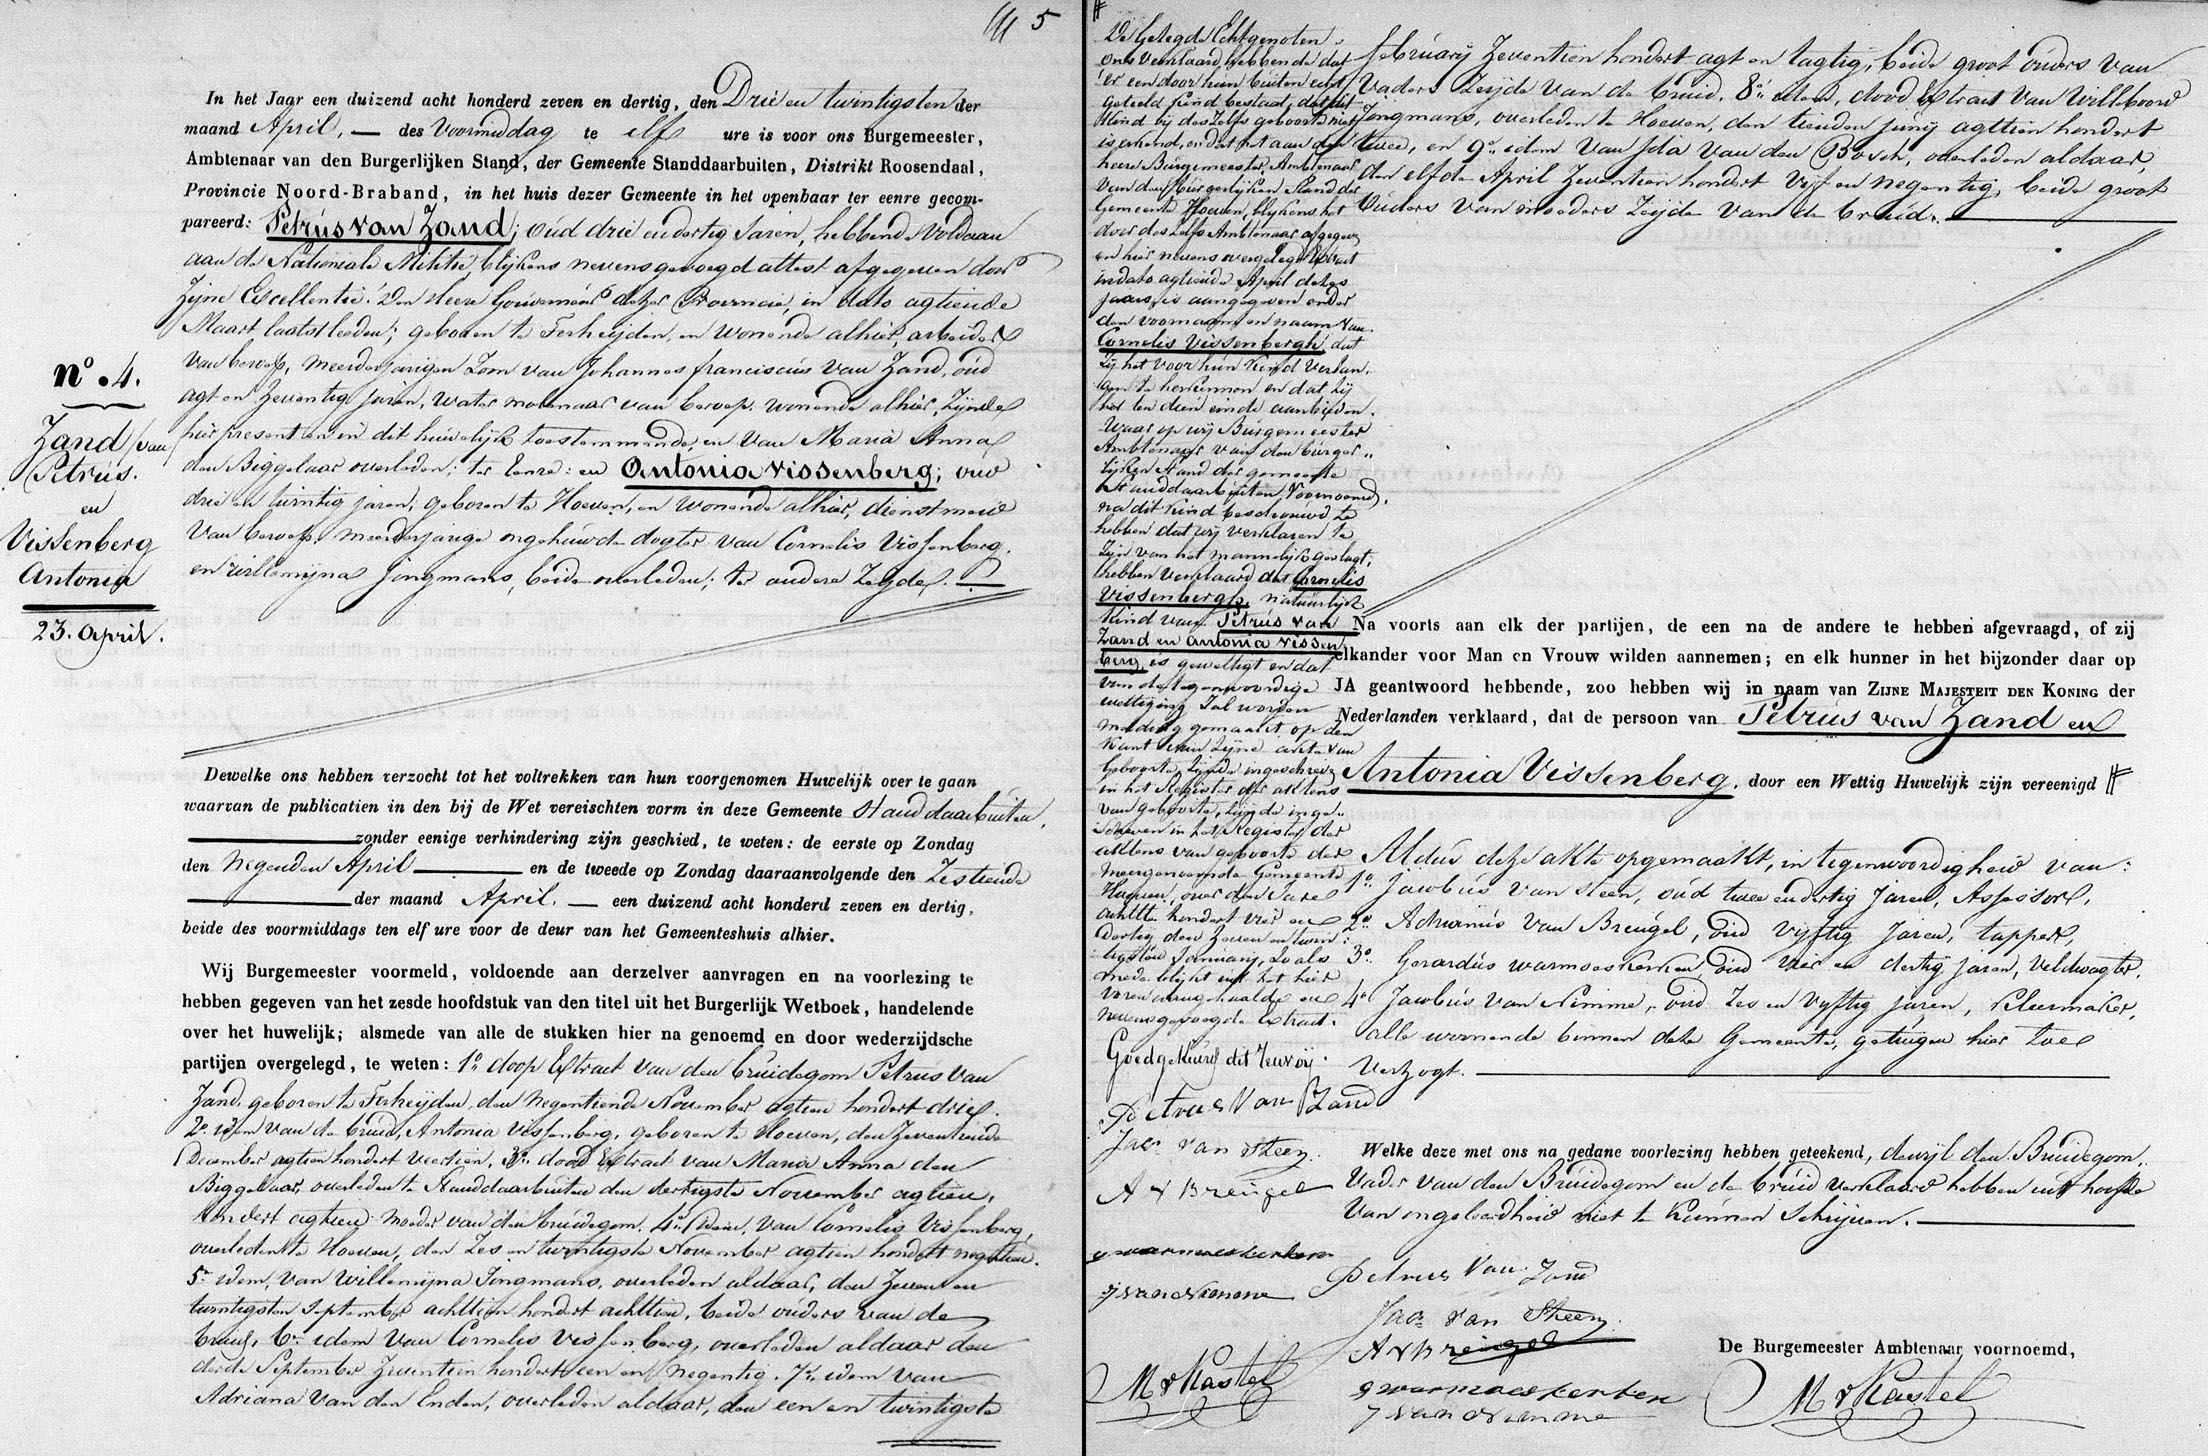 5
In het Jaar een duizend acht honderd zeven en dertig, den Drie en twintigsten der
maand April, — des Voormiddag te elf ure is voor ons Burgemeester,
Ambtenaar van den Burgerlijken Stand, der Gemeente Standdaarbuiten, Distrikt Roosendaal,
Provincie Noord-Braband, in het huis dezer Gemeente in het openbaar ter eenre gecom-
pareerd: Petrus van Zand, oud drie en dertig Jaren, hebbende voldaan
aan de Nationale Militie, blijkens nevensgevoegd attest afgegeven door
Zijne Excellentie den Heere Gouverneur dezer Provincie, in dato agtiende
Maart laatstleeden; geboren te Terheijden, en wonende alhier, arbeider
van beroep, meerderjarigen Zoon van Johannes franciscus van Zand, oud
agt en Zeventig jaren, water molenaar van beroep, wonende alhier, Zijnde
hier present en in dit huwelijk toestemmende, en van Maria Anna
den Biggelaar overleden: ter Eenre: en Antonia vissenberg; oud
drie en twintig jaren; geboren te Hoeven, en wonende alhier, dienstmeid
van beroep, meerderjarige ongehuwde dogter van Cornelis Vissenberg,
en willemijna jongmans, beide overleden; ter andere Zeyde. —
No. 4.
Zand (van
Petrus.
en
Vissenberg
Antonia
23. April.
Dewelke ons hebben verzocht tot het voltrekken van hun voorgenomen Huwelijk over te gaan
waarvan de publicatien in den bij de Wet vereischten vorm in deze Gemeente Standdaarbuiten,
zonder eenige verhindering zijn geschied, te weten: de eerste op Zondag
den Negenden April — en de tweede op Zondag daaraanvolgende den Zestiende
der maand April. — een duizend acht honderd zeven en dertig,
beide des voormiddags ten elf ure voor de deur van het Gemeenteshuis alhier.
Wij Burgemeester voormeld, voldoende aan derzelver aanvragen en na voorlezing te
hebben gegeven van het zesde hoofdstuk van den titel uit het Burgerlijk Wetboek, handelende
over het huwelijk; alsmede van alle de stukken hier na genoemd en door wederzijdsche
partijen overgelegd, te weten: 1o doop Extract van den bruidegom Petrus van
Zand, geboren te Terheijden, den Negentiende November agtien hondert drie.
2o idem van de bruid, Antonia Vissenberg, geboren te Hoeven, den Zeventiende
December agtien hondert veertien, 3o dood Extract van Maria Anna den
Biggelaar, overleden te Standdaarbuiten den dertigste November agtien,
hondert agtien moeder van den bruidegom, 4o idem, van Cornelis Vissenberg,
overleden te Hoeven, den Zes en twintigste November agtien hondert negentien.
5o idem, van Willemijna Jongmans, overleden aldaar, den Zeven en
twintigsten September achttien hondert achttien, beide ouders van de
bruid, 6o idem van Cornelis Vissenberg, overleden aldaar den
derde September Zeventien hondert een en negentig, 7o, idem van
Adriana van den Enden, overleden aldaar, den een en twintigste
De Gelegde Echtgenoten
ons verklaard hebbende dat
er een door hun buiten echt
geteeld kind bestaat, dat dit
kind bij deszelfs geboorte niet
is erkend, en dat het aan den
heere Burgemeester Ambtenaar
van den burgerlijken Stand der
Gemeente Hoeven, blijkens het
door deszelfs Ambtenaar afgegeven
en hier nevens overgelegd Extract
in dato agtiende April dezes
jaars, is aangegeven onder
den voornaam en naam van
Cornelis Vissenbergh, dat
Zij het voor hun kind verlan-
gen te herkennen en dat zij
het ten dien einde aanbieden.
Waar op wij Burgemeester
Ambtenaar van den burger-
lijken stand der gemeente
Standdaarbuiten, voornoemd,
na dit kind beschouwd te
hebben dat wij verklaren te
Zijn van het mannelijk geslagt,
hebben verklaard dat Cornelis
Vissenbergh, natuurlijk
kind van Petrus van
Zand en Antonia Vissen
berg is gewettigt en dat
van de tegenwoordige
wettiging Zal worden
melding gemaakt op den
kant van Zijne akte van
Geboorte, Zijnde ingeschreven
in het Register der aktens
van geboorte, Zijnde inge-
schreven in het Register der
aktens van geboorte der
meergenoemde Gemeente
Hoeven, over den Jare
achtte hondert vier en
dertig den Zeven en twin-
tigsten January, Zoals
mede blijkt uit het hier
voren aangehaalde en
nevensgevoegde Extract.
Goedgekeurd dit renvooij.
Petrus Van Zand
Jac. van Steen.
A v Breugel
g warmoeskerken
J van Nimme
M v Kastel
february Zeventien hondert agt en tagtig, beide groot ouders van
Vaders Zeijde van de bruid. 8o idem, dood Extract van Willeboord
Jongmans, overleden te Hoeven, den tienden junij agttien hondert
twee, en 9o idem van Ida van den Bosch, overleden aldaar,
den elfde April Zeventien hondert vijf en negentig, beide groot
Ouders van moeders Zeijde van de bruid. —
Na voorts aan elk der partijen, de een na de andere te hebben afgevraagd, of zij
elkander voor Man en Vrouw wilden aannemen; en elk hunner in het bijzonder daar op
JA geantwoord hebbende, zoo hebben wij in naam van Zijne Majesteit den Koning der
Nederlanden verklaard, dat de persoon van Petrus van Zand en
Antonia Vissenberg. door een Wettig Huwelijk zijn vereenigd #
Aldus deze akte opgemaakt, in tegenwoordigheid van:
1o Jacobus van Steen, oud twee en dertig Jaren, Assessor,
2o Adrianus van Breugel, oud vijftig Jaren, tapper,
3o Gerardus warmoeskerken, oud vier en dertig jaren, Veldwagter,
4o Jacobus van Nimme, oud Zes en vijftig jaren, kleermaker,
alle wonende binnen deze Gemeente, getuigen hier toe
verzogt. —
Welke deze met ons na gedane voorlezing hebben geteekend, dewijl den Bruidegom,
Vader van den Bruidegom en de bruid verklaard hebben uit hoofde
van ongeleerdheid niet te kunnen Schrijven. —
Petrus Van Zand
Jac. van Steen.
A v Breugel
g warmoeskerken
J van Nimme
De Burgemeester Ambtenaar voornoemd,
M v Kastel